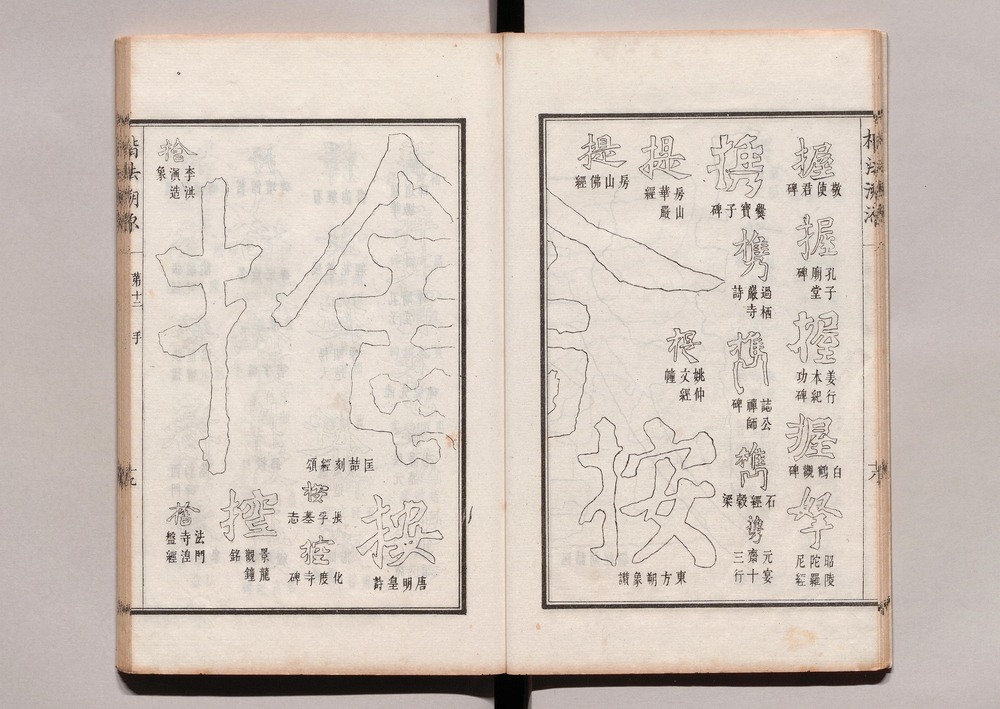 楷法溯源
握
敬使君碑
握
孔子廟堂碑
握
姜行本紀功碑
握
白鶴觀碑
昭陵陀羅尼經
攜
爨寶子碑
過栖巖寺詩
誌公禪師碑
石經穀梁
元宴齋十三行
提
房山華嚴經
提
姚仲文經幢
提
房山佛經
按
東方朔象讚
按
唐明皇詩
匡喆刻經頌
按
張孚墓志
控
化度寺碑
控
景龍觀鐘銘
李洪演造象
法門寺湼盤經
楷法溯源
第十二
手